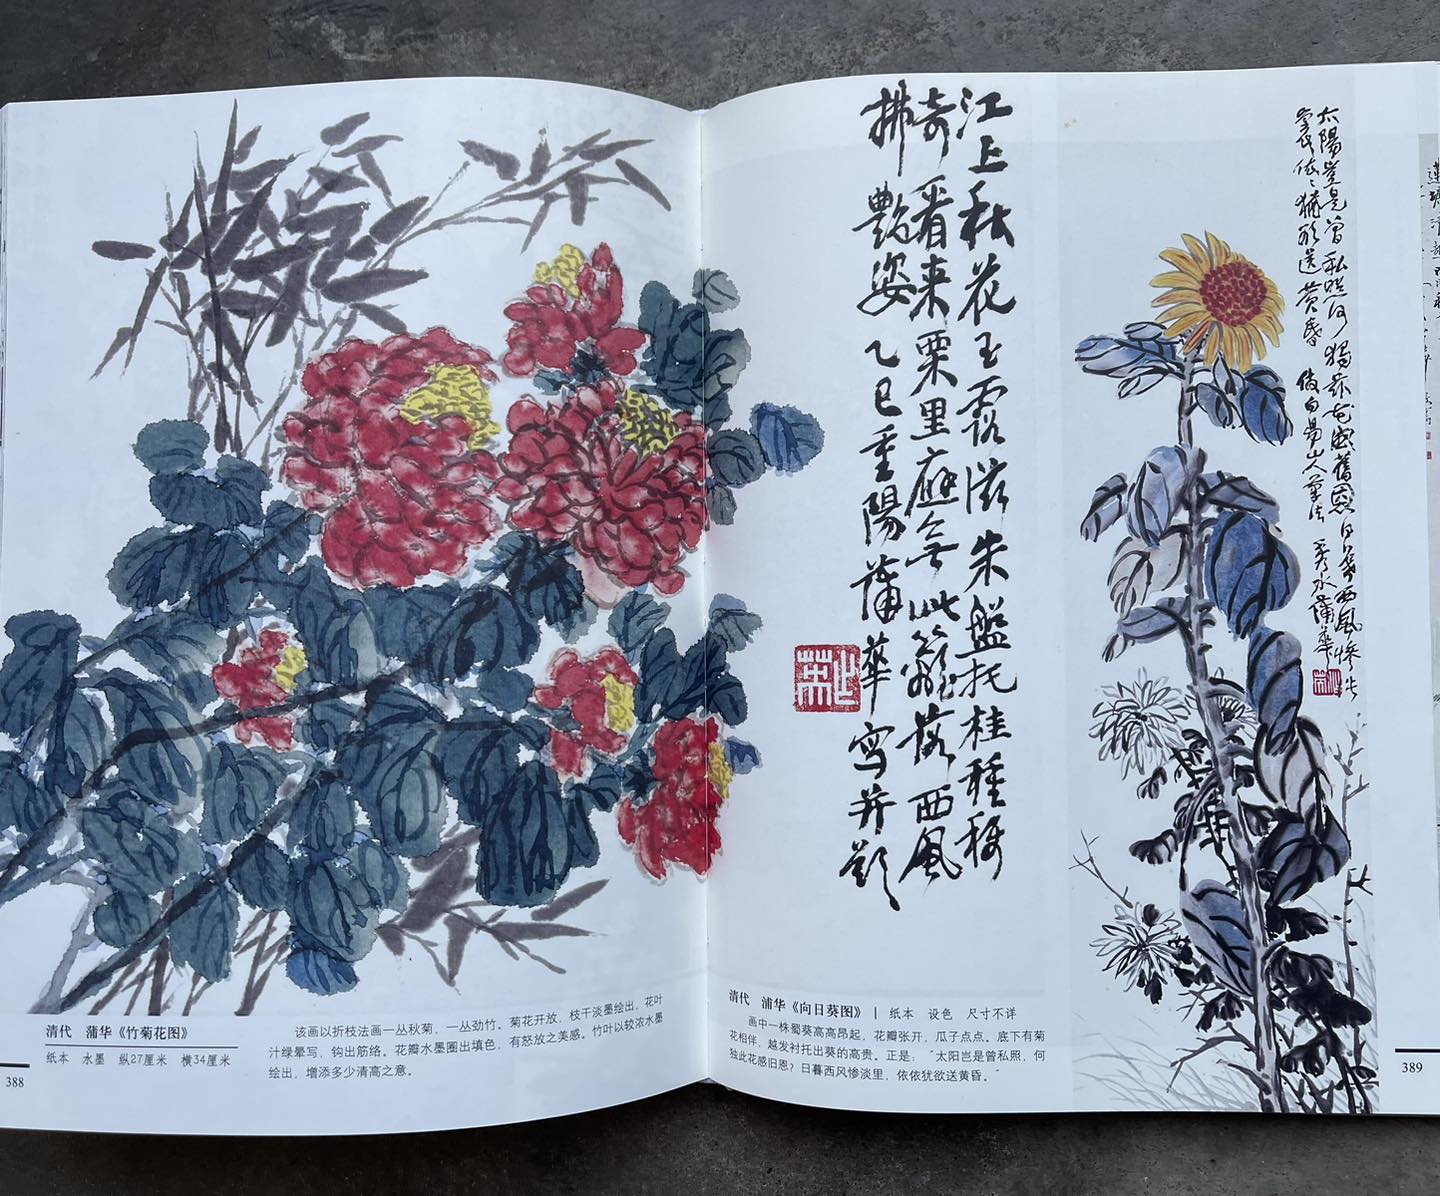 江上秋花玉露滋朱盤托桂種移
奇看来栗里應無此籬落西風
拂艷姿乙巳重陽蒲華写并题
太陽豈是曾私照何獨此花感舊恩日暮西風惨淡
裡依依猶欲送黄昏 仿白昜山人筆法 秀水蒲華
清代 蒲华《竹菊花图》
纸本 水墨 纵27厘米 横34厘米
该画以折枝法画一丛秋菊，一丛劲竹。菊花开放，枝干淡墨绘出，花叶
汁绿晕写，钩出筋络。花瓣水墨圈出填色，有怒放之美感。竹叶以较浓水墨
绘出，增添多少清高之意。
388
清代 浦华《向日葵图》 | 纸本 设色 尺寸不详
画中一株蜀葵高高昂起，花瓣张开，瓜子点点。底下有菊
花相伴，越发衬托出葵的高贵。正是：“太阳岂是曾私照，何
独此花感旧恩？日暮西风惨淡里，依依犹欲送黄昏。”
389